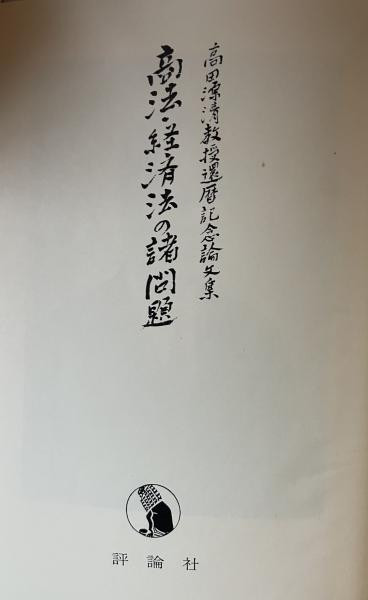 高田源清教授還暦記念論文集
商法・経済法の諸問題
評論社